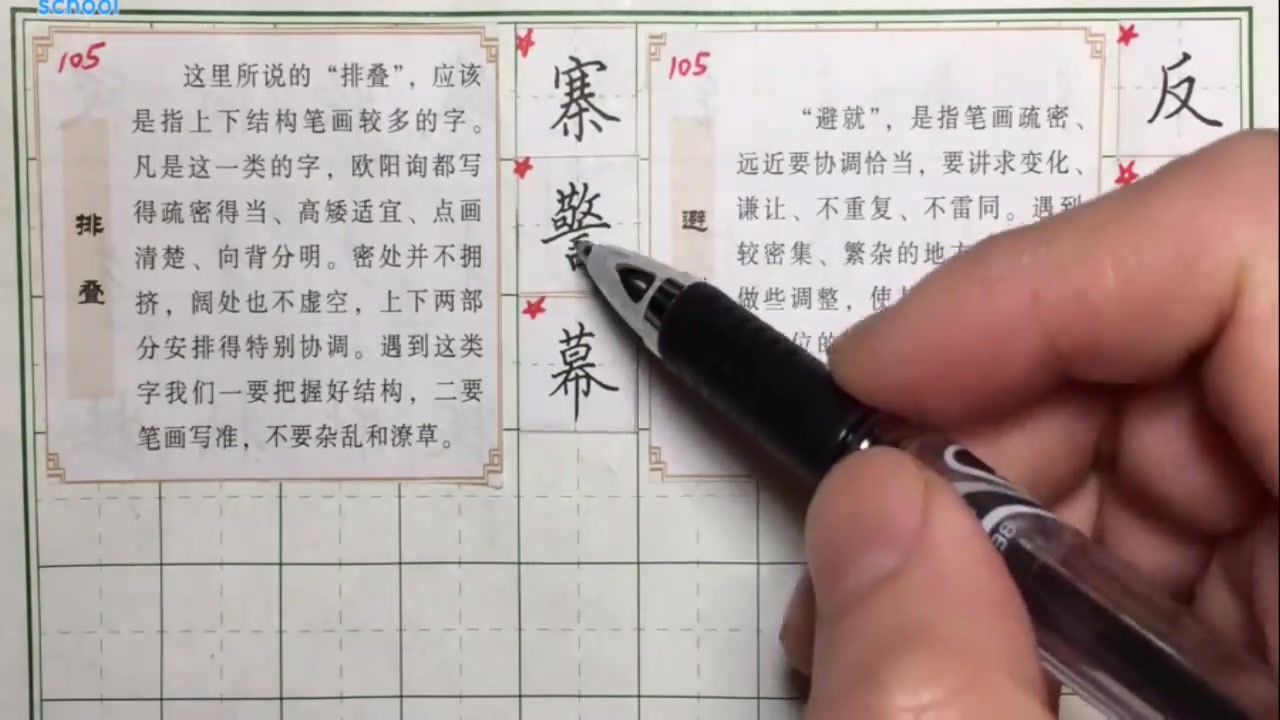 school
105
排叠
这里所说的“排叠”，应该
是指上下结构笔画较多的字。
凡是这一类的字，欧阳询都写
得疏密得当、高矮适宜、点画
清楚、向背分明。密处并不拥
挤，阔处也不虚空，上下两部
分安排得特别协调。遇到这类
字我们一要把握好结构，二要
笔画写准，不要杂乱和潦草。
寨
警
幕
105
避
“避就”，是指笔画疏密、
远近要协调恰当，要讲求变化、
谦让、不重复、不雷同。遇到
较密集、繁杂的地方
做些调整，使
位的
反